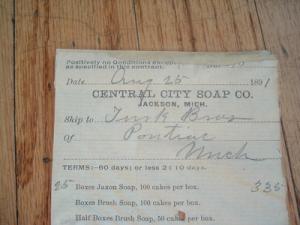 Positively no Conditions except
as specified in this contract.
Date Aug 25 1891
CENTRAL CITY SOAP CO.
JACKSON, MICH.
Ship to Turk Bros
Of Pontiac
Mich
TERMS:—60 days; or less 2:10 days.
25 Boxes Jaxon Soap, 100 cakes per box. 335
Boxes Brush Soap, 100 cakes per box.
Half Boxes Brush Soap, 50 cakes per box.